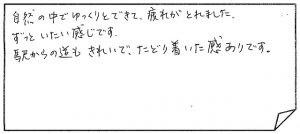 自然の中でゆっくりとできて、疲れがとれました。
ずっといたい感じです.
駅からの道も きれいで、たどり着いた感ありです。